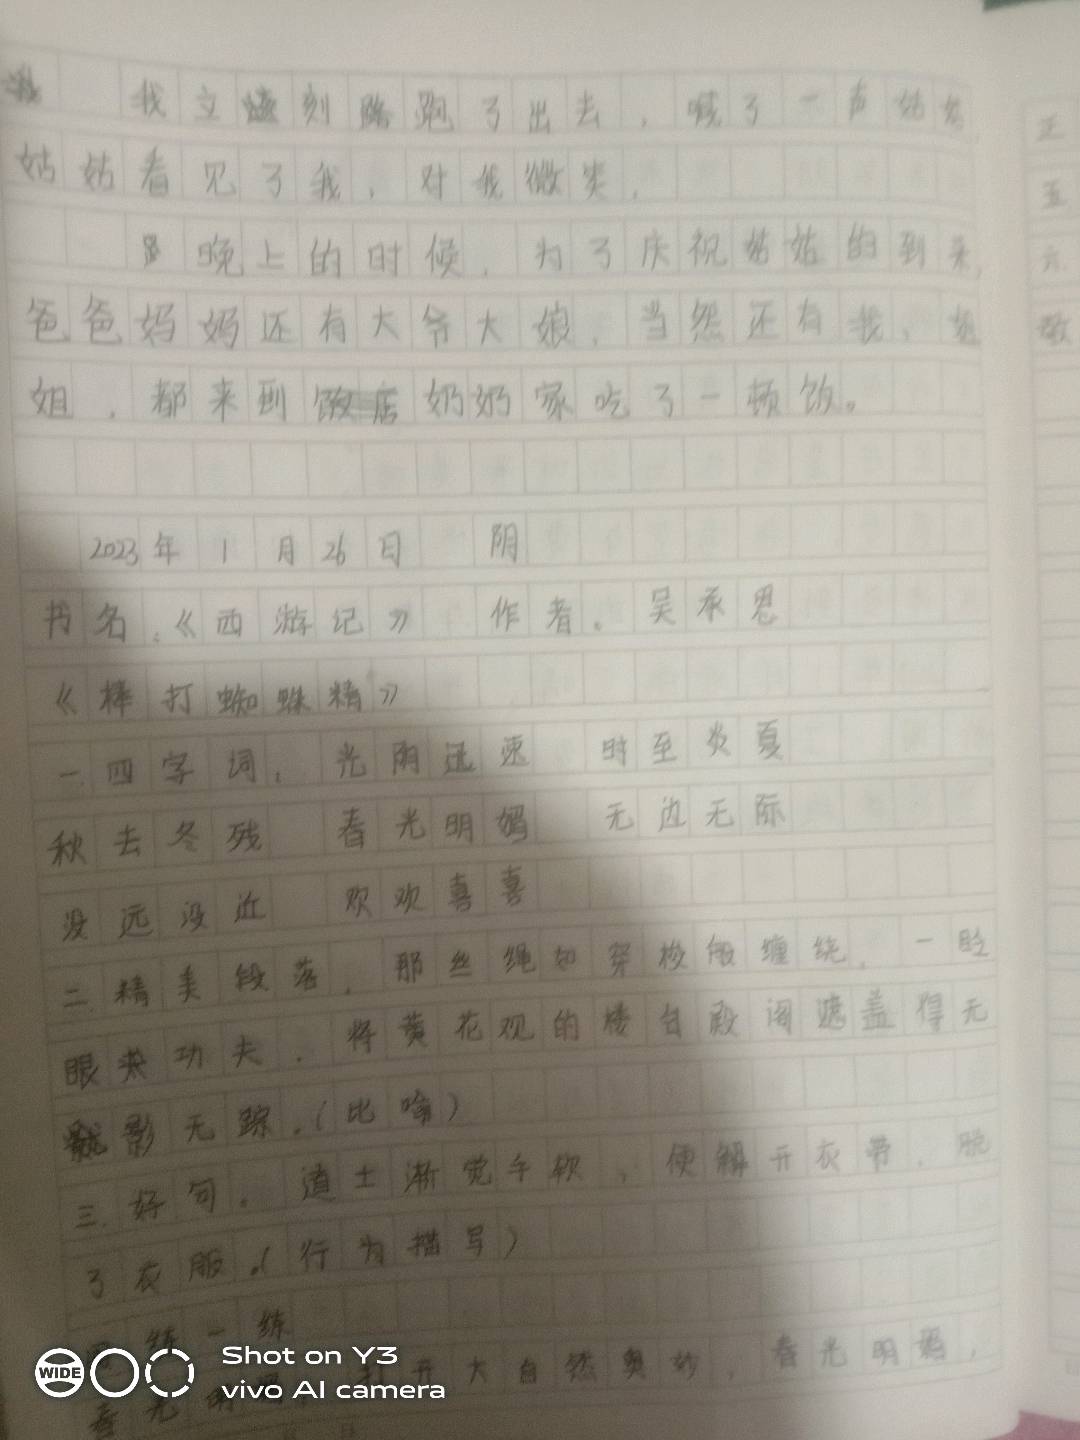 我立刻跑了出去，喊了一声姑姑
姑姑看见了我，对我微笑，
晚上的时候，为了庆祝姑姑的到来，
爸爸妈妈还有大爷大娘，当然还有我、姐
姐，都来到奶奶家吃了一顿饭。
2023年1月26日 阴
书名：《西游记》 作者：吴承恩
《棒打蜘蛛精》
一四字词：光阴迅速 时至炎夏
秋去冬残 春光明媚 无边无际
没远没近 欢欢喜喜
二.精美段落：那丝绳如穿梭般缠绕，一眨
眼功夫，将黄花观的楼台殿阁遮盖得无
影无踪。（比喻）
三.好句。道士渐觉手软，便解开衣带，脱
了衣服。（行为描写）
四 练一练
春光明媚 开大自然奥妙，春光明媚，
正
五
六
歌
WIDE Shot on Y3
vivo AI camera